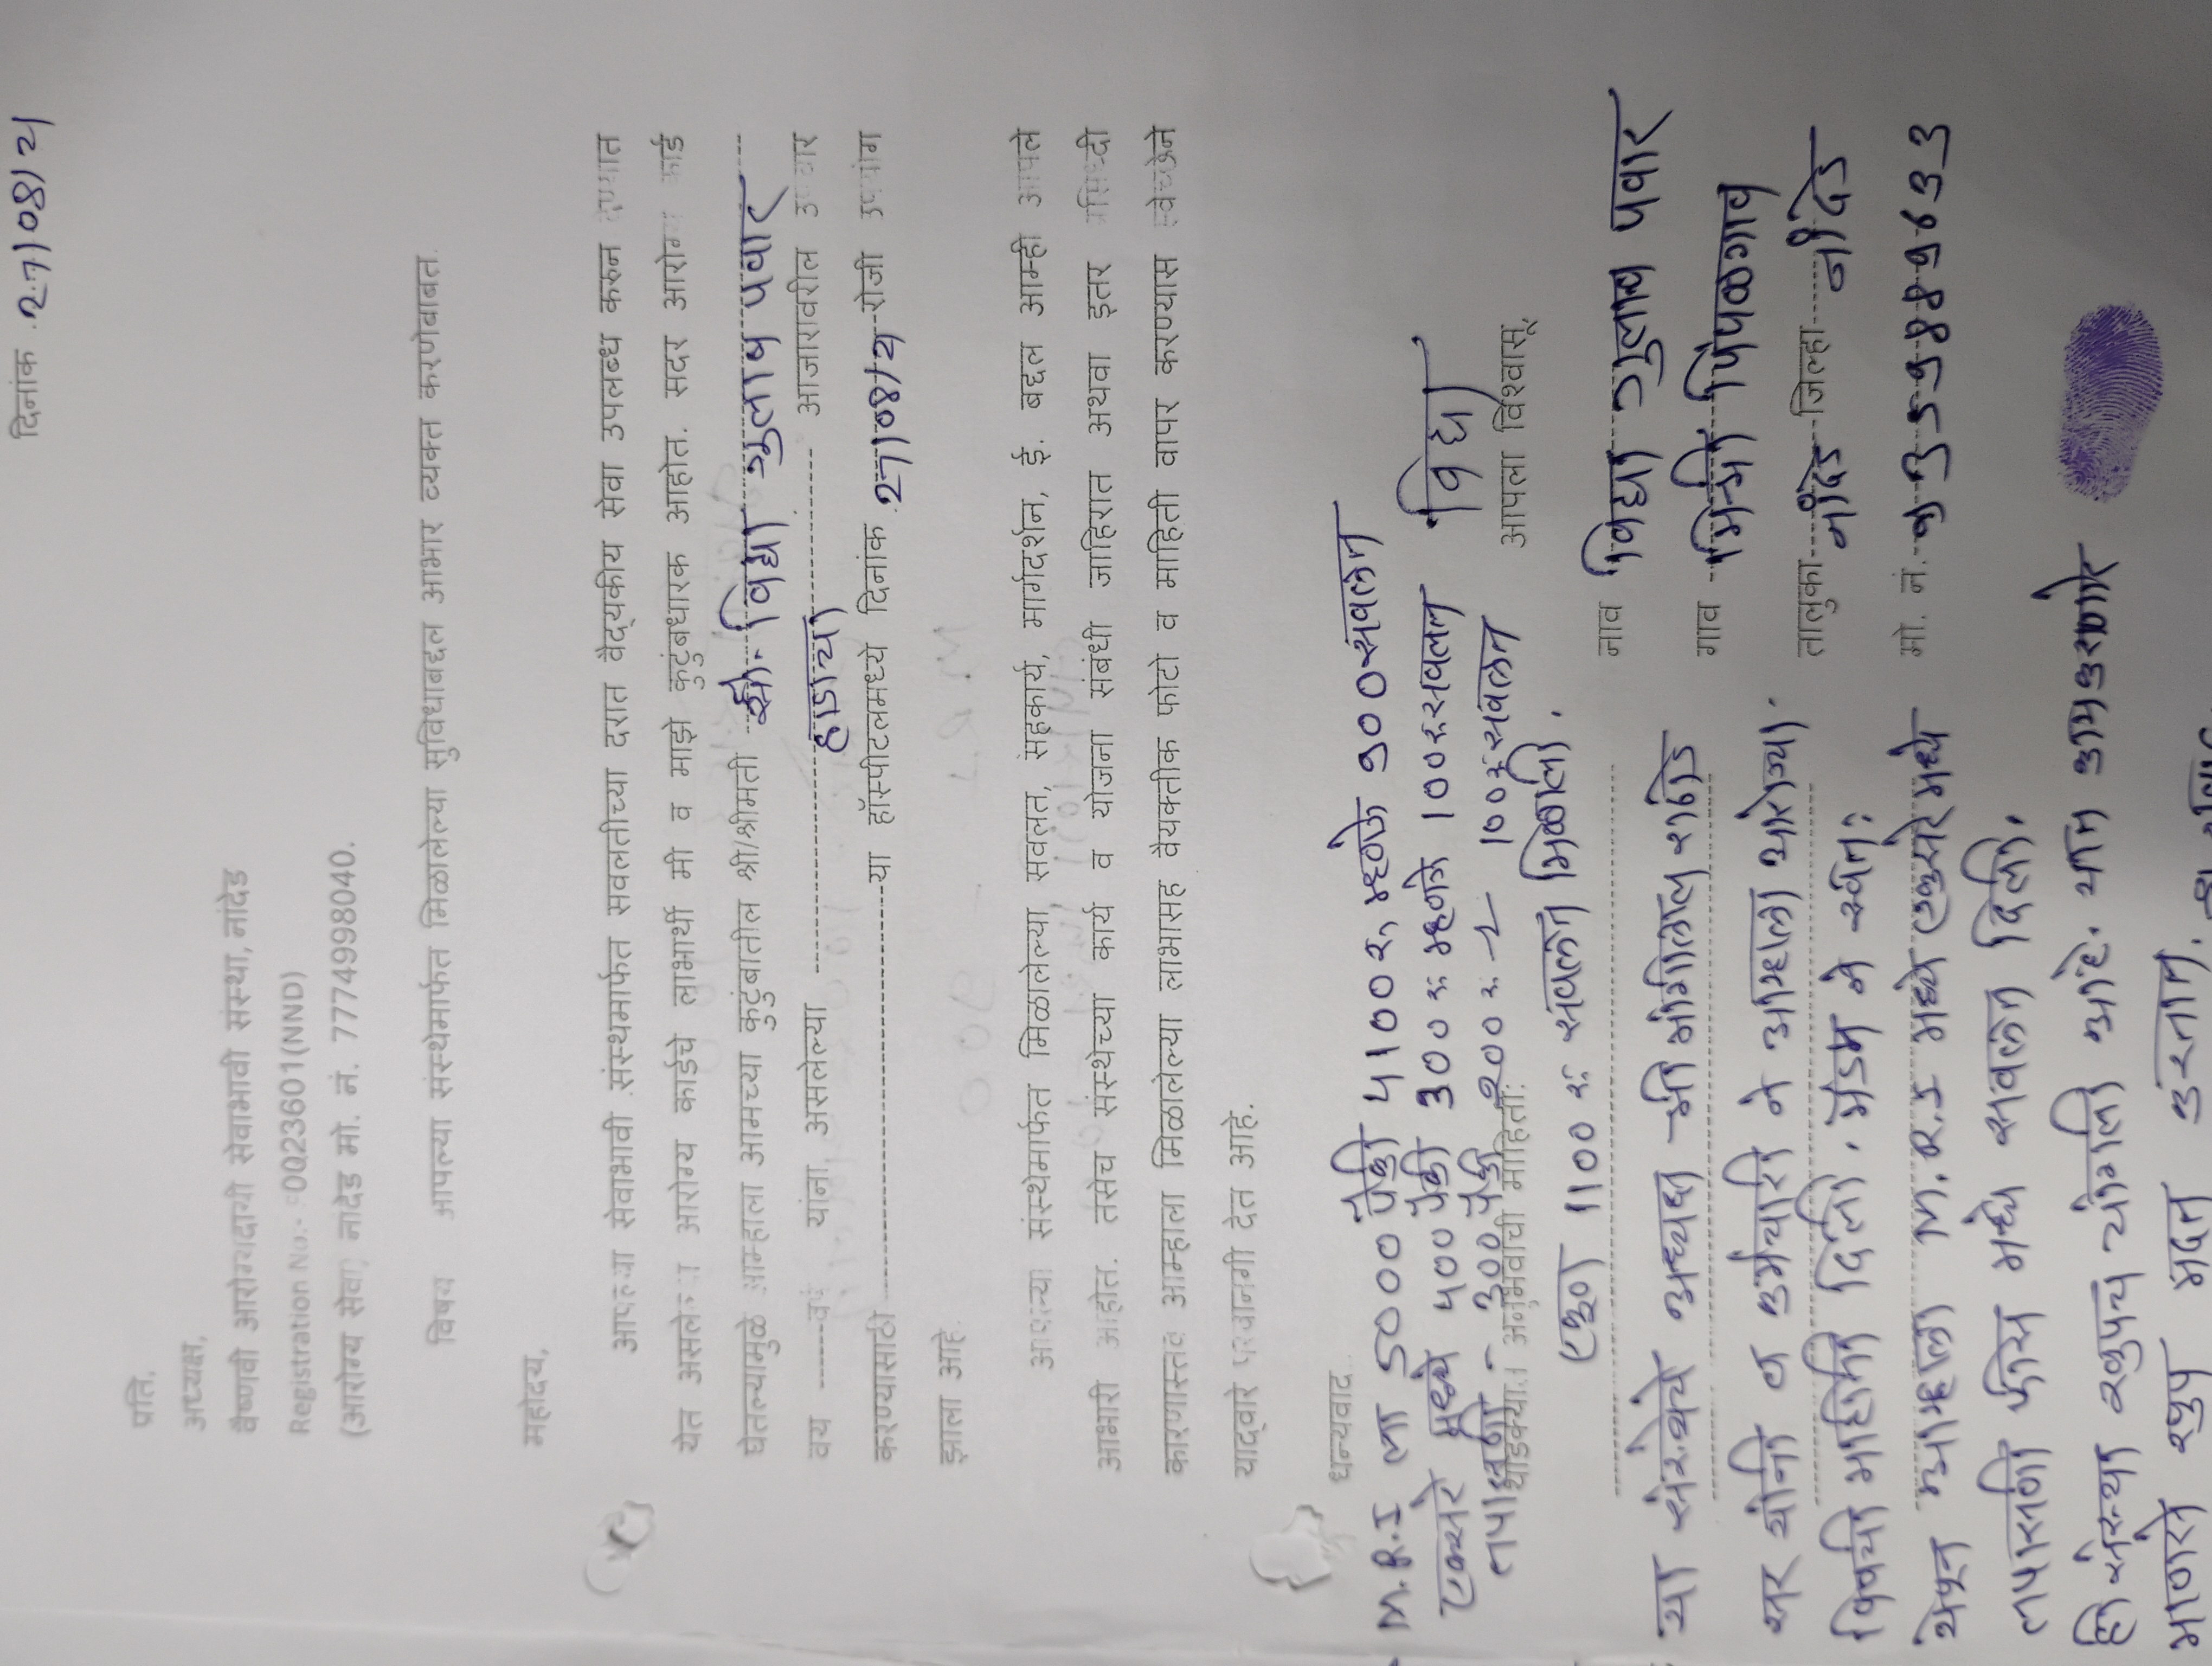 दिनांक 27/08/2
प्रति,
अध्यक्ष,
वैष्णवी आरोग्यदायी सेवाभावी संस्था, नांदेड
Registration No:- 0023601(NND)
(आरोग्य सेवा) नांदेड मो. नं. 7774998040.
विषय आपल्या संस्थेमार्फत मिळालेल्या सुविधाबद्दल आभार व्यक्त करणेबाबत.
महोदय,
आपल्या सेवाभावी संस्थेमार्फत सवलतीच्या दरात वैद्यकीय सेवा उपलब्ध करुन देण्यात
येत असलेल्या आरोग्य कार्डचे लाभार्थी मी व माझे कुटुंबधारक आहोत. सदर आरोग्य कार्ड
घेतल्यामुळे आम्हाला आमच्या कुटुंबातील श्री/श्रीमती सौ. विद्या गुलाब पवार
वय ------वर्ष यांना, असलेल्या हाडाच्या आजारावरील उपचार
करण्यासाठी या हॉस्पीटलमध्ये दिनांक 27/08/2 रोजी उपयोग
झाला आहे.
आपल्या संस्थेमार्फत मिळालेल्या सवलत, सहकार्य, मार्गदर्शन, ई. बद्दल आम्ही आपले
आभारी आहोत. तसेच संस्थेच्या कार्य व योजना संबंधी जाहिरात अथवा इतर प्रसिध्दी
कारणास्तव आम्हाला मिळालेल्या लाभासह वैयक्तीक फोटो व माहिती वापर करण्यास स्वेच्छेने
याद्वारे परवानगी देत आहे.
धन्यवाद..
M.R.I ला 5000 पैकी 4100 रु म्हणजे 900 सवलत
एक्सरे मध्ये 400 पैकी 300 रु म्हणजे 100 रु सवलत
तपासणी - 300 पैकी 200 रु - 100 रु सवलत
विद्या
आपला विश्वासू,
थोडक्यात अनुभवाची माहिती:
एकूण 1100 रु सवलत मिळाली.
नाव विद्या गुलाब पवार
गाव पिंपळगाव
तालुका नांदेड जिल्हा नांदेड
मो. नं. 9
या संस्थेचे अध्यक्ष श्री मांगीलाल राठोड
सर यांनी व कर्मचारी ने आम्हाला आरोग्या
विषयी माहिती दिली. मॅडम ने स्वतः
येथून आम्हाला M.R.I मध्ये एक्सरे मध्ये
तपासणी फीस मध्ये सवलत दिली.
ही संस्था खुपच चांगली आहे. यात काम करणारे
माणसे खुप मदत करतात.